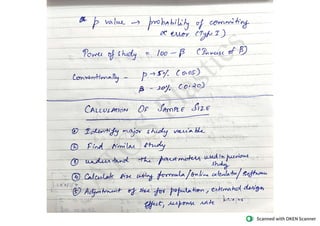 α p value → probability of commiting
α error (Type I).
Power of study = 100 – β (Inverse of β)
Conventionally – p → 5% (0.05)
β – 20% (0.20)
CALCULATION OF SAMPLE SIZE
① Identify major study variable
② Find similar study
③ understand the parameters used in previous
study
④ Calculate size using formula/online calculator/software
⑤ Adjustment of size for population, estimated design
effect, response rate
Scanned with OKEN Scanner